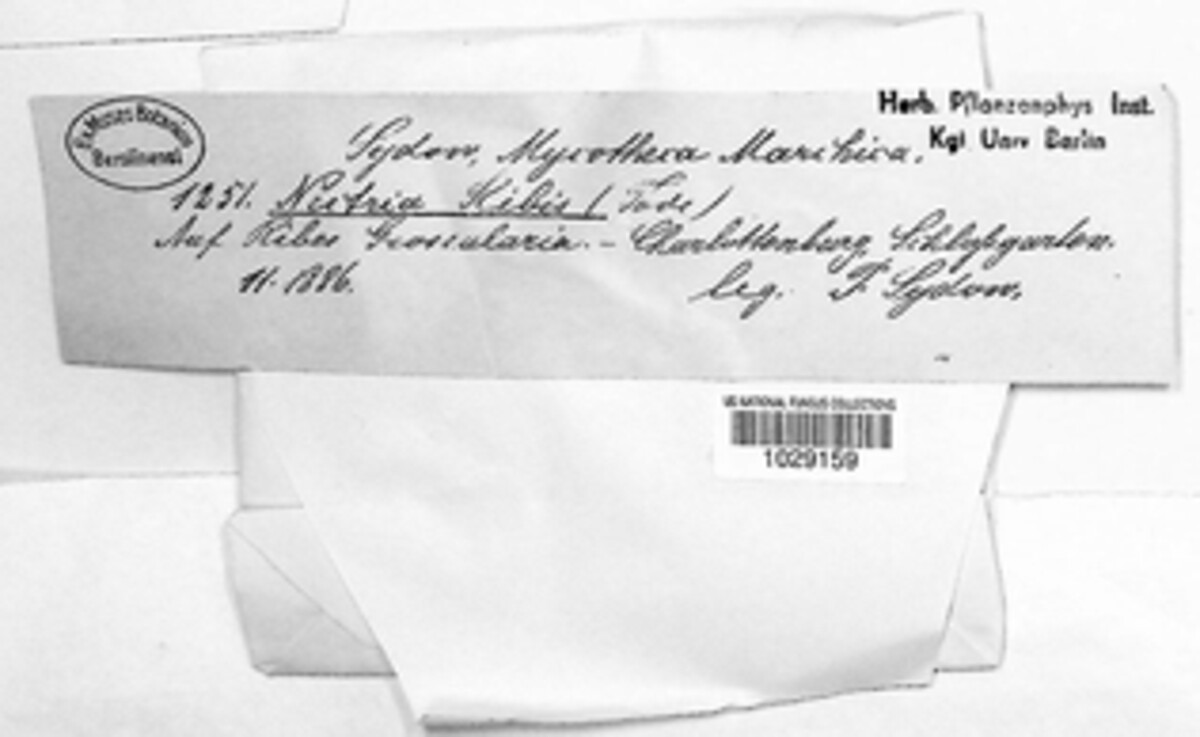 Ex Museo Botanico
Berolinensi
Herb. Pflanzenphys Inst.
Kgl Univ Berlin
Sydow, Mycotheca Marchica.
1251. Nectria Ribis (Tode)
Auf Ribes Grossularia. - Charlottenburg, Schloßgarten.
11. 1886. leg. P. Sydow.
US NATIONAL FUNGUS COLLECTIONS
1029159